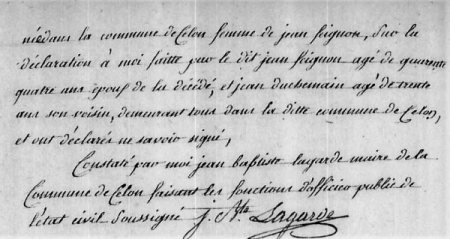 née dans la commune de Celon femme de jean feignon, Sur la
déclaration à moi faitte par le dit jean feignon agé de quarente
quatre ans époux de la décédé, et jean duchemain agé de trente
ans son voisin, demeurant tous dans la ditte commune de Celon,
et ont déclarés ne savoir signé,
Constaté par moi jean baptiste lagarde maire de la
Commune de Celon faisant les fonctions d'officier public de
l'état civil Soussigné J. Bte Lagarde